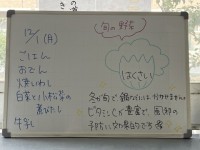 の
き
12/1(月)
ごはん
おでん
焼いわし
白菜と小松菜の
煮びたし
牛乳
旬の野菜
はくさい
冬が旬で鍋などには欠かせません。
ビタミンCが豊富で、風邪の
予防に効果的です